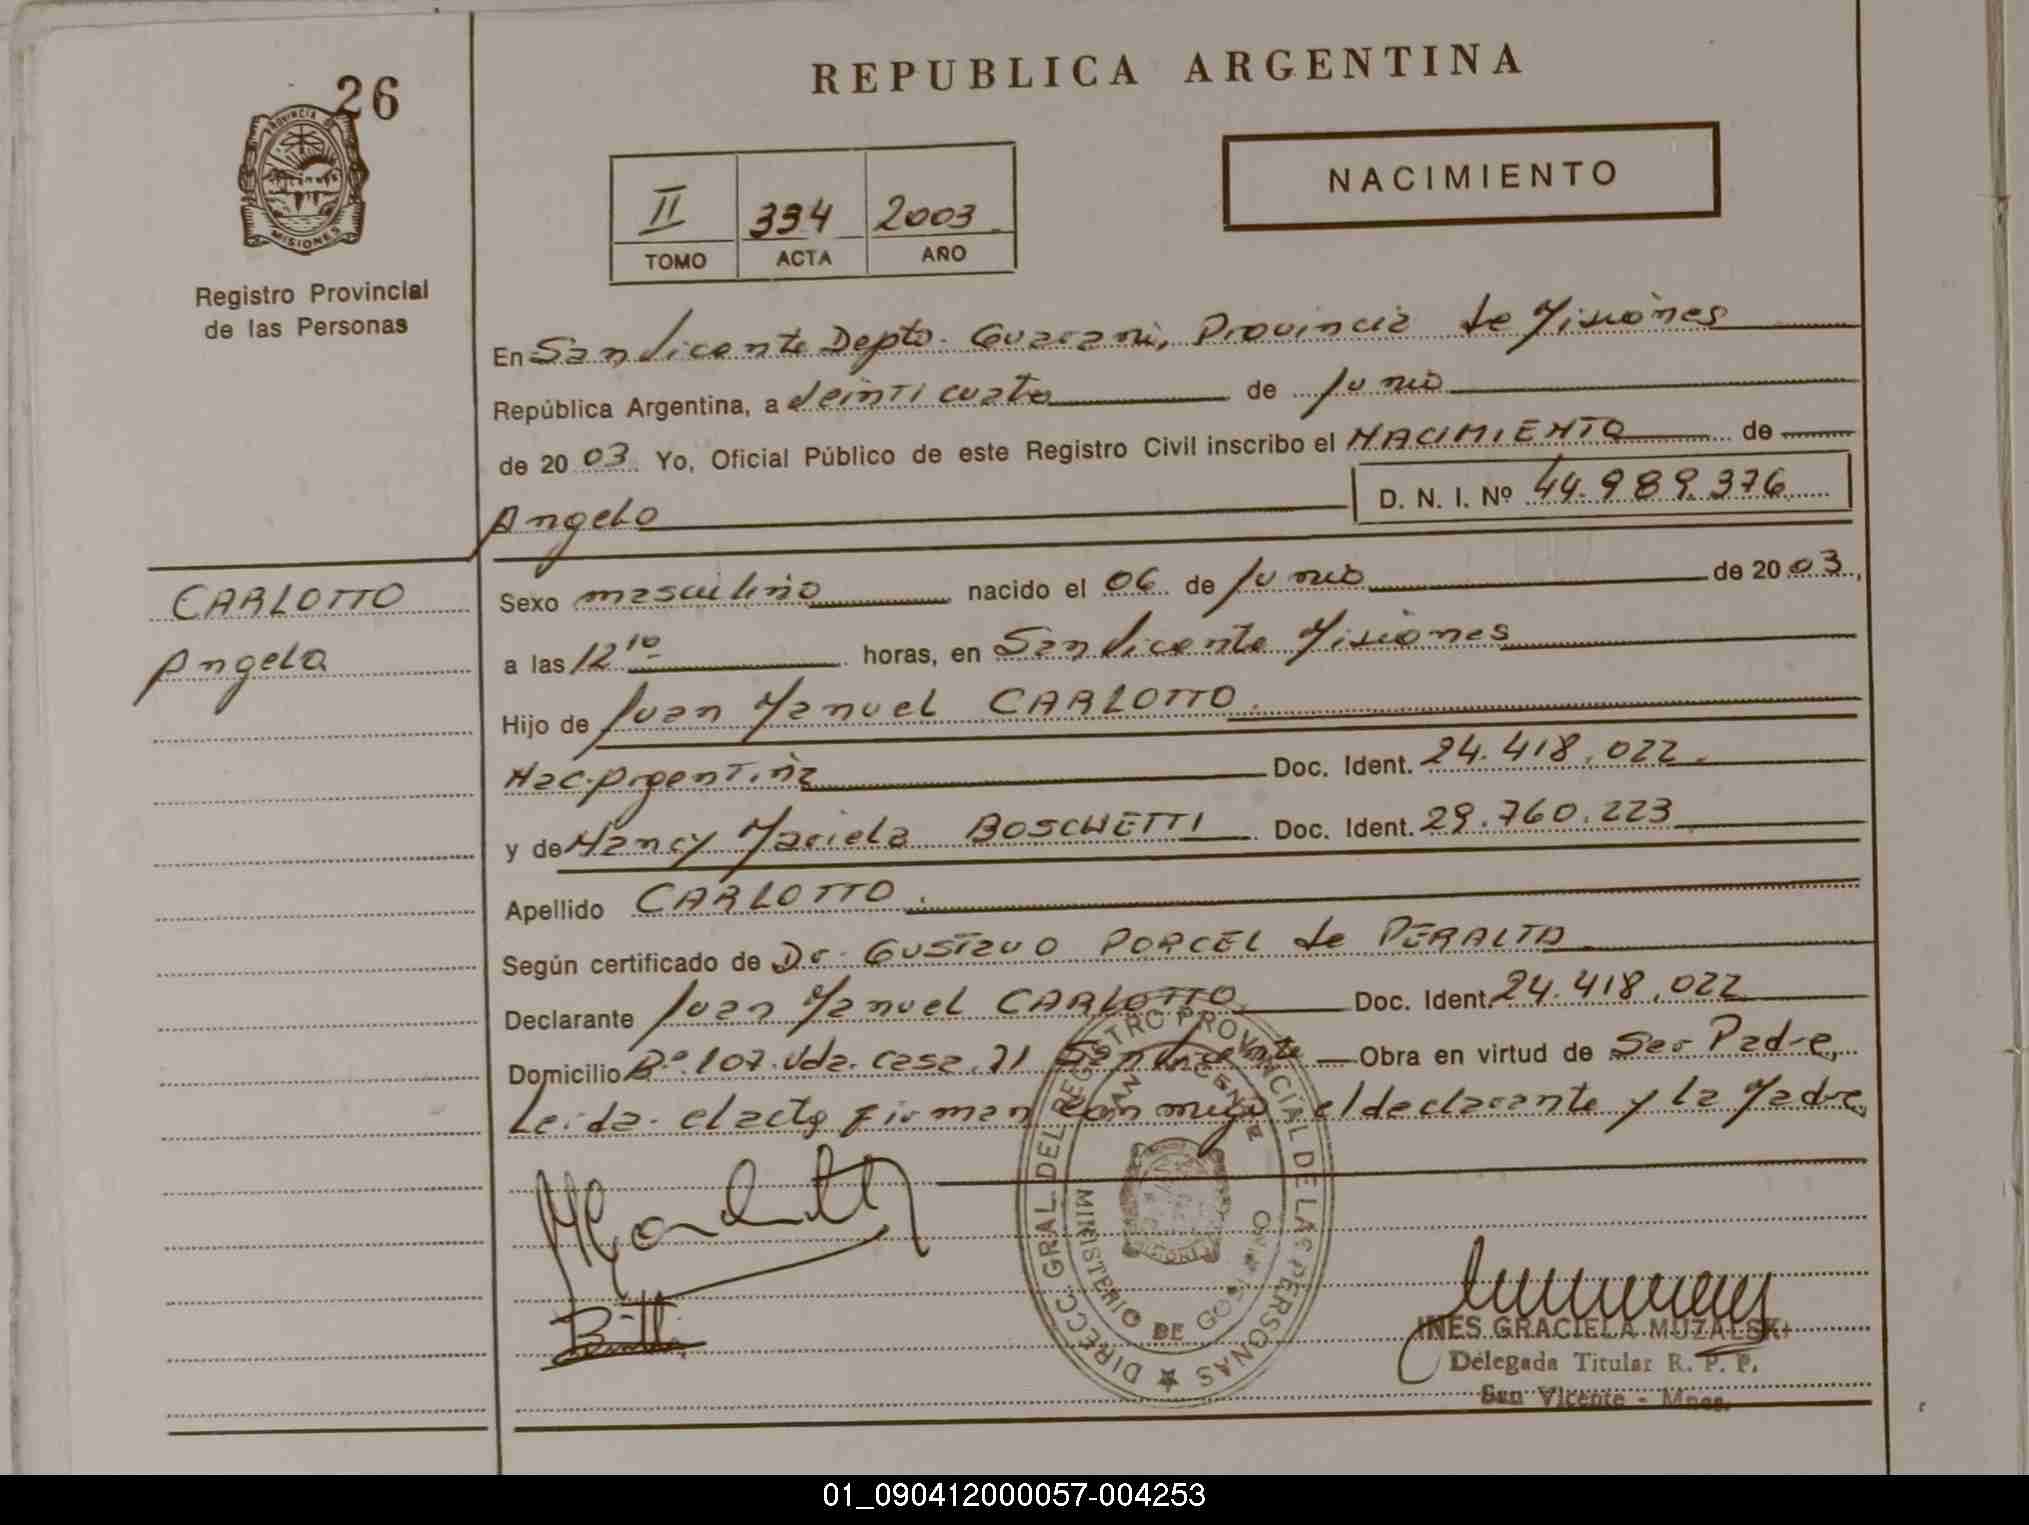 REPUBLICA ARGENTINA
26
PROVINCIA DE
MISIONES
Registro Provincial
de las Personas
NACIMIENTO
II 334 2003
TOMO ACTA AÑO
En San Vicente Depto. Guarani, Provincia de Misiones
República Argentina, a Veinticuatro de Junio
de 2003. Yo, Oficial Público de este Registro Civil inscribo el NACIMIENTO de
Angelo D. N. I. Nº 44.989.376
CARLOTTO
Angelo
Sexo masculino nacido el 06 de Junio de 2003,
a las 12 10 horas, en San Vicente Misiones
Hijo de Juan Manuel CARLOTTO.
Nac. Argentina Doc. Ident. 24.418.022.
y de Nancy Mariela BOSCHETTI Doc. Ident. 29.760.223
Apellido CARLOTTO.
Según certificado de Dr. Gustavo PORCEL de PERALTA
Declarante Juan Manuel CARLOTTO Doc. Ident. 24.418.022
Domicilio Bº. 107. Vda. Casa. 71 San Vicente Obra en virtud de Ser Padre,
Leida. el acta firman conmigo el declarante y la Madre,
DIRECC. GRAL. DEL REGISTRO PROVINCIAL DE LAS PERSONAS
SAN VICENTE
MINISTERIO DE GOBIERNO
MISIONES
INES GRACIELA MUZALSKI
Delegada Titular R. P. P.
San Vicente - Mnes.
01_090412000057-004253